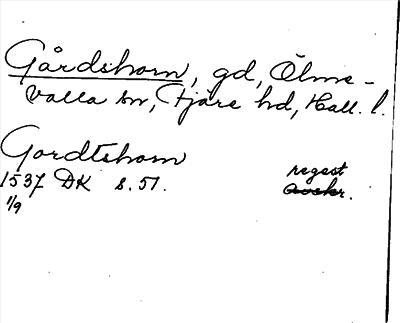 Gårdshorn, gd, Ölme-
valla sn, Fjäre hd, Hall. l.
Gordtshorn
1537 DK s. 51. regest
1/9 avskr.